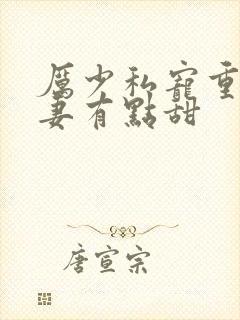 厲少私寵重
妻有點甜
唐宣宗